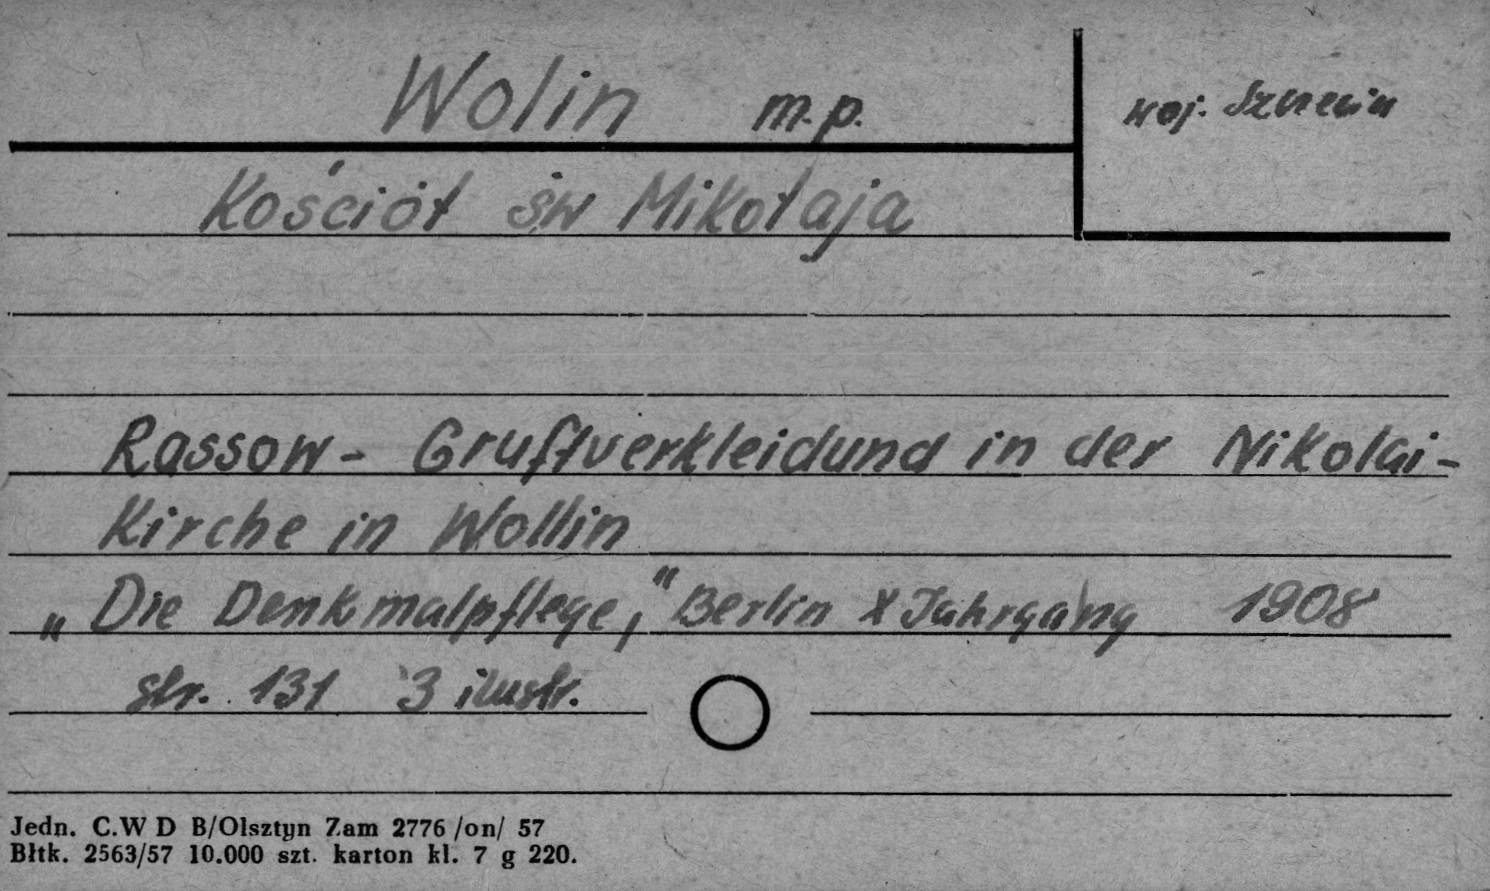 Wolin m.p.
woj. Szczecin
Kościół św Mikołaja
Rassow - Gruftverkleidund in der Nikolai-
Kirche in Wollin
„Die Denkmalpflege," Berlin X Jahrgang 1908
str. 131 3 ilustr.
Jedn. C.W D B/Olsztyn Zam 2776 /on/ 57
Błtk. 2563/57 10.000 szt. karton kl. 7 g 220.